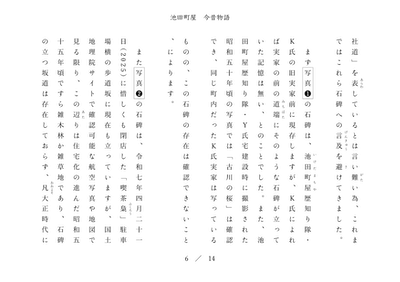 池田町屋 今昔物語
社道」を表しているとは言い難い為、これま
ではこれら石碑への言及を避けてきました。
まず写真❶の石碑は、池田町屋歴知り隊・
K氏の旧実家前に現存しますが、K氏によれ
ば実家の前の道端にそのような石碑が立って
いた記憶は無い、とのことでした。また、池
田町屋歴知り隊・Y氏宅建設時に撮影された
昭和五十年頃の写真では「古川の桜」は確認
でき、同じ町内だったK氏実家は写っている
ものの、この石碑の存在は確認できないこと
によります。
また写真❷の石碑は、令和七年四月二十一
日(2025)に惜しくも閉店した「喫茶梟」駐車
場横の歩道坂に現在も立っていますが、国土
地理院サイトで確認可能な航空写真や地図で
見る限り、この辺りは住宅化の進んだ昭和五
十五年頃ですら雑木林か雑草地であり、石碑
の立つ坂道は存在しておらず、凡大正時代に
6 / 14